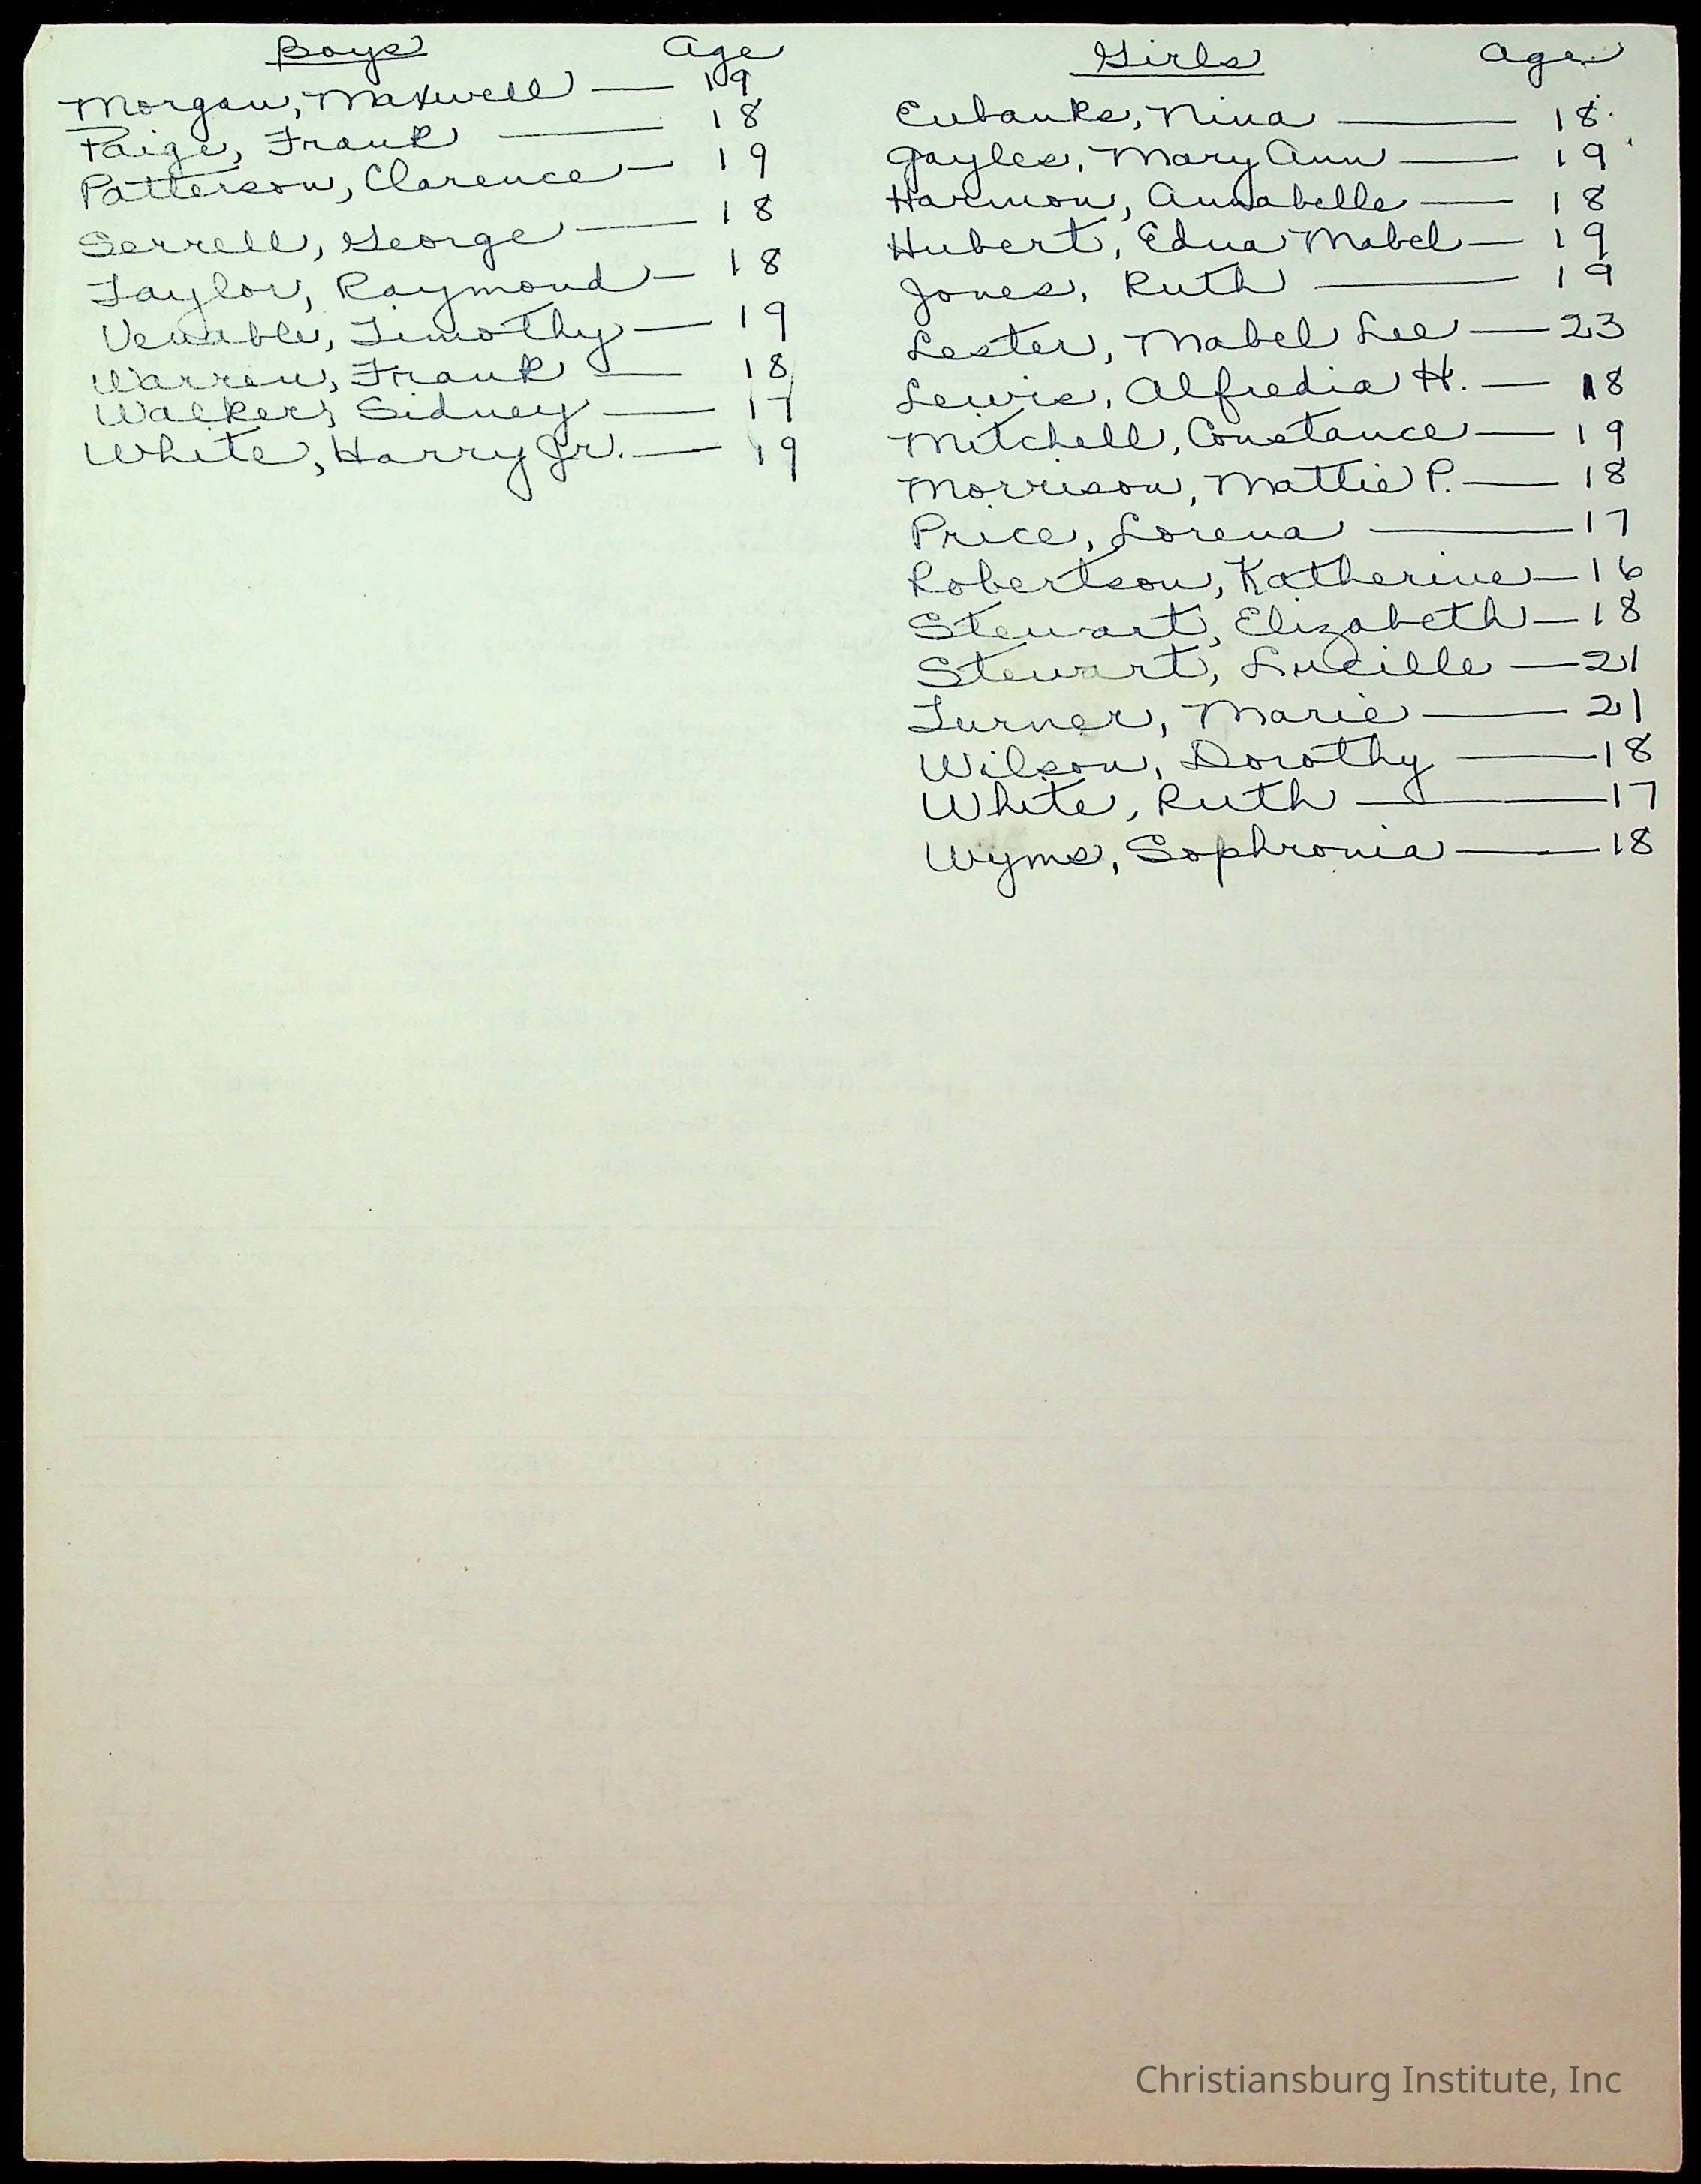 Boys Age
Morgan, Maxwell — 19
Paige, Frank — 18
Patterson, Clarence — 19
Serrell, George — 18
Taylor, Raymond — 18
Venable, Timothy — 19
Warren, Frank — 18
Walker, Sidney — 17
White, Harry Jr. — 19
Girls Age
Eubanks, Nina — 18
Gayles, Mary Ann — 19
Harmon, Annabelle — 18
Hubert, Edna Mabel — 19
Jones, Ruth — 19
Lester, Mabel Lee — 23
Lewis, Alfredia H. — 18
Mitchell, Constance — 19
Morrison, Mattie P. — 18
Price, Lorena — 17
Robertson, Katherine — 16
Stewart, Elizabeth — 18
Stewart, Lucille — 21
Turner, Marie — 21
Wilson, Dorothy — 18
White, Ruth — 17
Wyms, Sophronia — 18
Christiansburg Institute, Inc